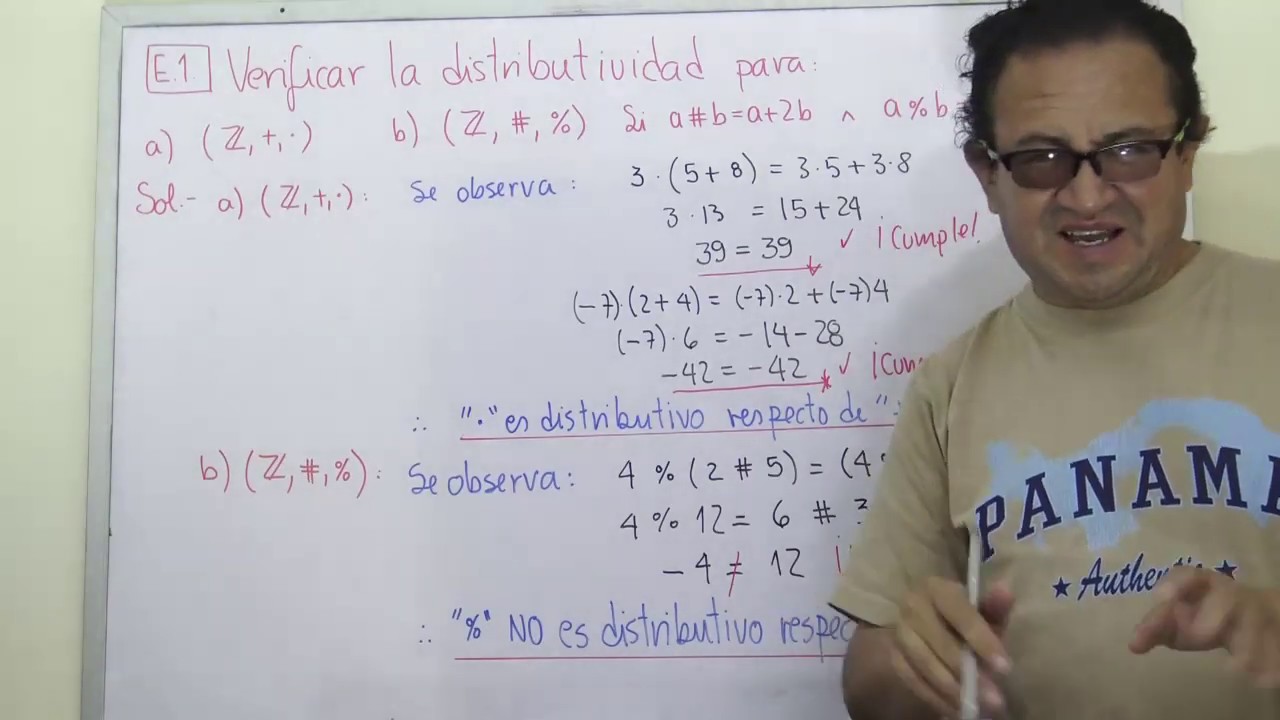 E.1. Verificar la distributividad para:
a) (ℤ, +, ·) b) (ℤ, #, %) Si a#b=a+2b ∧ a%b
Sol.- a) (ℤ,+,·): Se observa: 3·(5+8) = 3·5+3·8
3·13 = 15+24
39 = 39 ✓ ¡Cumple!
(-7)·(2+4) = (-7)·2+(-7)4
(-7)·6 = -14-28
-42 = -42 ✓
∴ "·" es distributivo respecto de "
b) (ℤ,#,%): Se observa: 4 % (2 # 5) = (4
4 % 12 = 6 #
-4 ≠ 12 ¡
∴ "%" NO es distributivo
PANAMA
★ Authentic ★